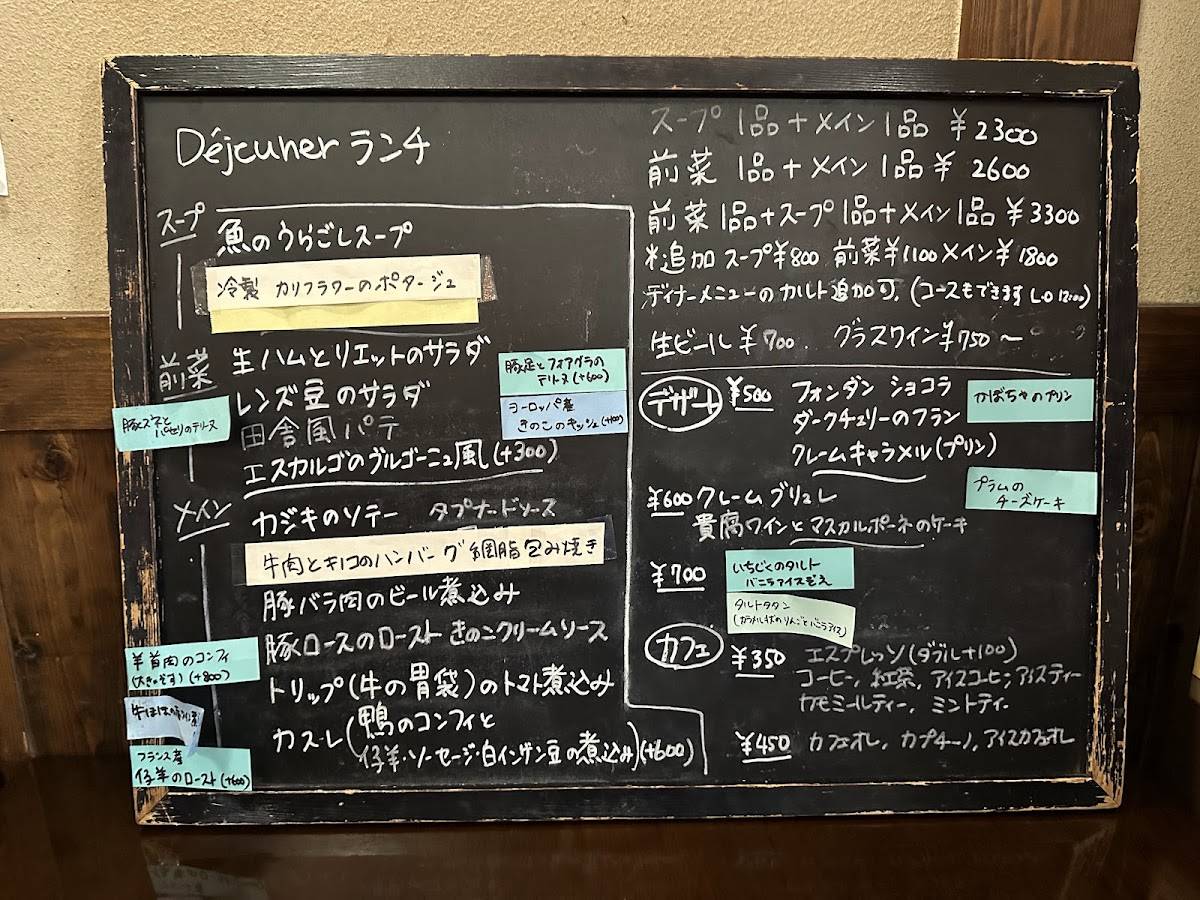 Déjeuner ランチ
スープ
魚のうらごしスープ
冷製 カリフラワーのポタージュ
前菜
生ハムとリエットのサラダ
レンズ豆のサラダ
田舎風パテ
エスカルゴのブルゴーニュ風(+300)
豚足とフォアグラの
テリーヌ(+600)
ヨーロッパ産
きのこのキッシュ(+100)
豚スネと
パセリのテリーヌ
メイン
カジキのソテー タプナードソース
牛肉とキノコのハンバーグ 網脂包み焼き
豚バラ肉のビール煮込み
豚ロースのロースト きのこクリームソース
トリップ(牛の胃袋)のトマト煮込み
カスーレ(鴨のコンフィと
仔羊・ソーセージ・白インゲン豆の煮込み)(+600)
羊首肉のコンフィ
(+800)
フランス産
仔羊のロースト(+600)
スープ1品+メイン1品 ¥2300
前菜 1品+メイン1品 ¥ 2600
前菜1品+スープ1品+メイン1品 ¥3300
*追加 スープ¥800 前菜¥1100 メイン¥1800
ディナーメニューのカルト追加可.(コースもできます L.O 12:00)
生ビール¥700. グラスワイン¥750〜
デザート
¥500 フォンダン ショコラ
ダークチェリーのフラン
クレームキャラメル(プリン)
かぼちゃのプリン
プラムの
チーズケーキ
¥600 クレーム ブリュレ
貴腐ワインとマスカルポーネのケーキ
¥700
いちじくのタルト
バニラアイス添え
タルトタタン
(カラメル状のりんごとバニラアイス)
カフェ
¥350 エスプレッソ(ダブル+100)
コーヒー, 紅茶, アイスコーヒー, アイスティー
カモミールティー, ミントティー
¥450 カフェオレ, カプチーノ, アイスカフェオレ